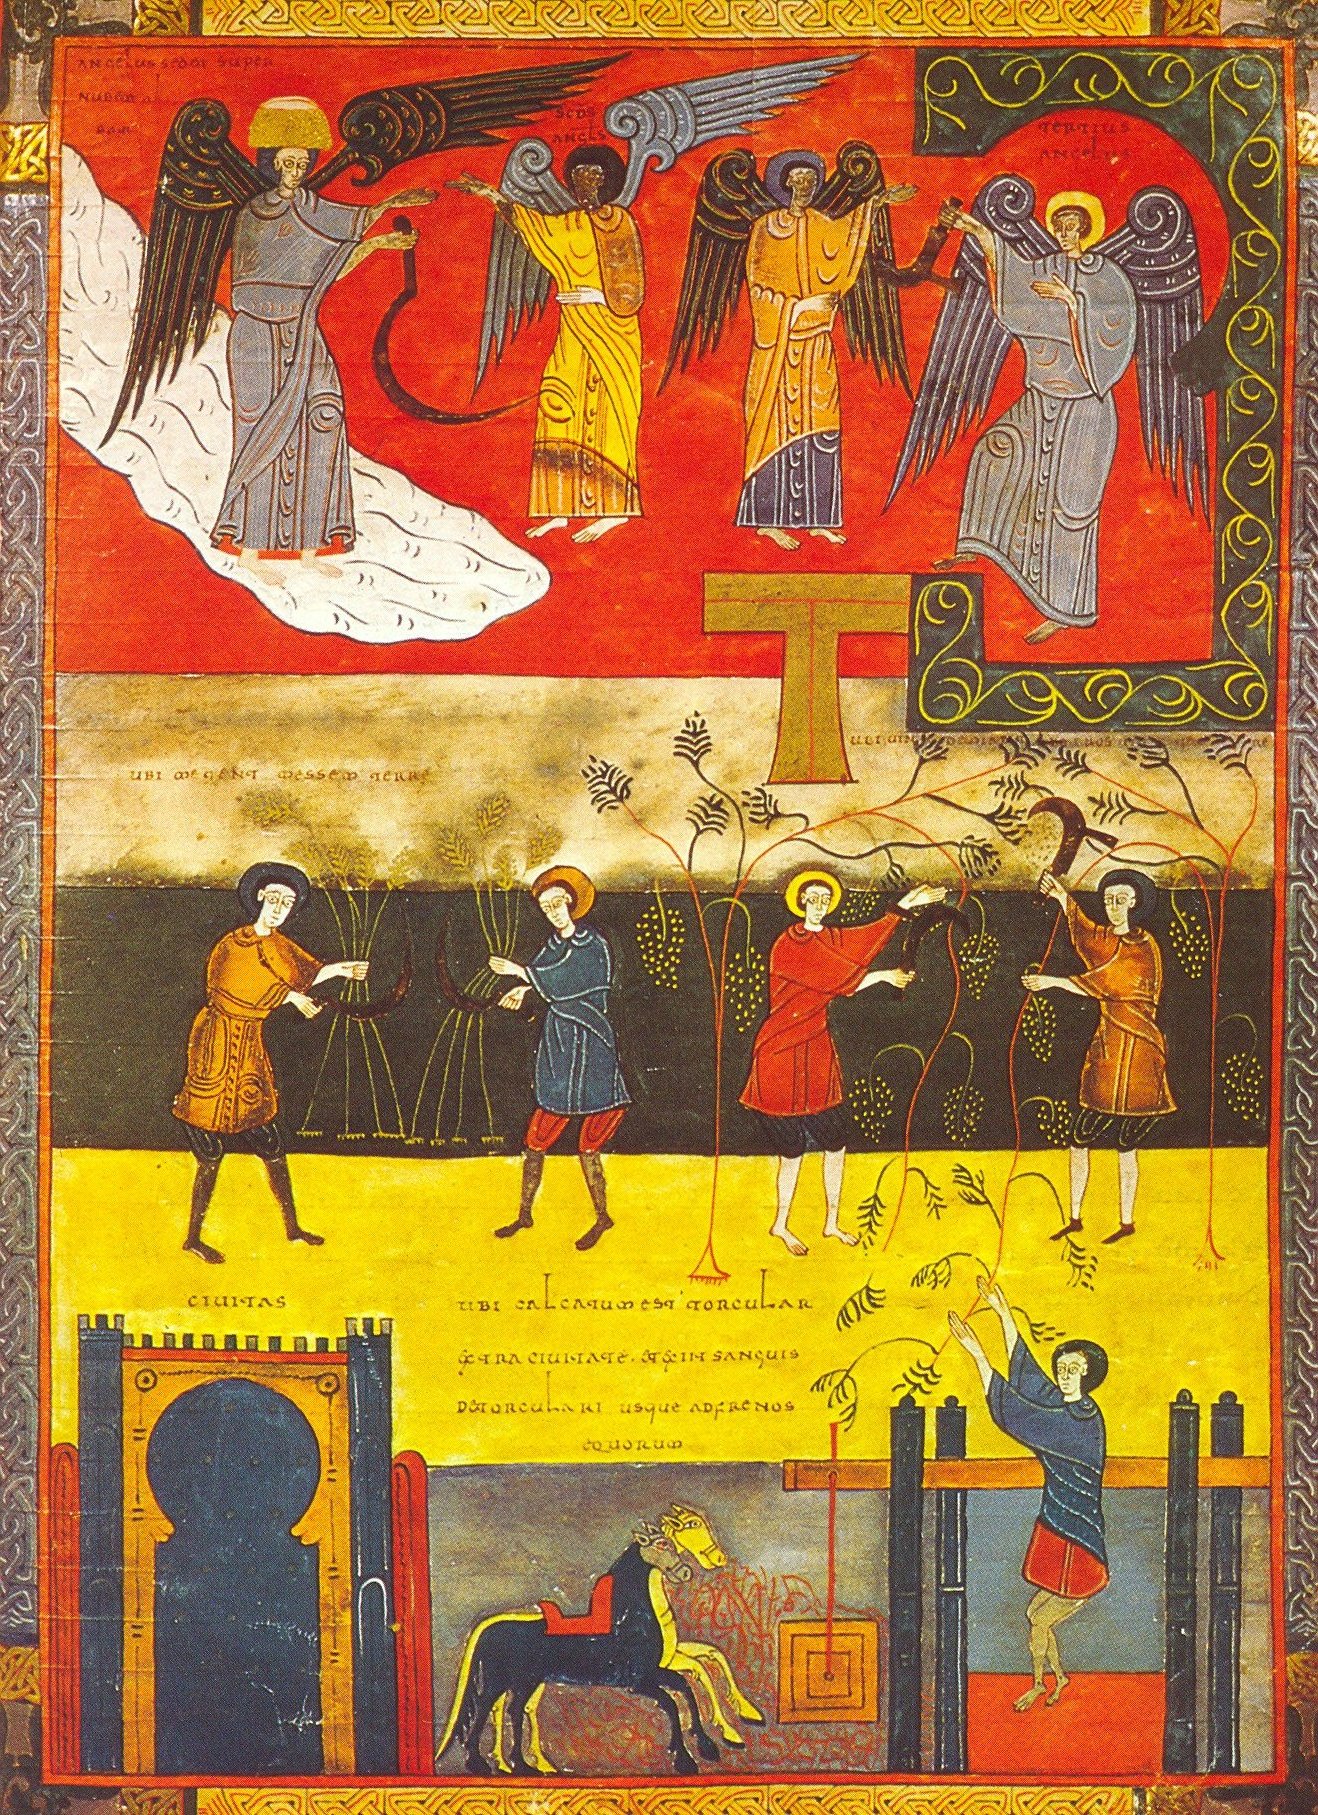 ANGELUS SEDET SUPER
NUBEM
SCDS
ANGLS
TERTIUS
ANGELUS
UBI METENT MESSEM TERRE
CIUITAS
UBI CALCATUM EST TORCULAR
EXTRA CIUITATĒ. ET EXIIT SANGUIS
DE TORCULARI USQUE AD FRENOS
EQUORUM